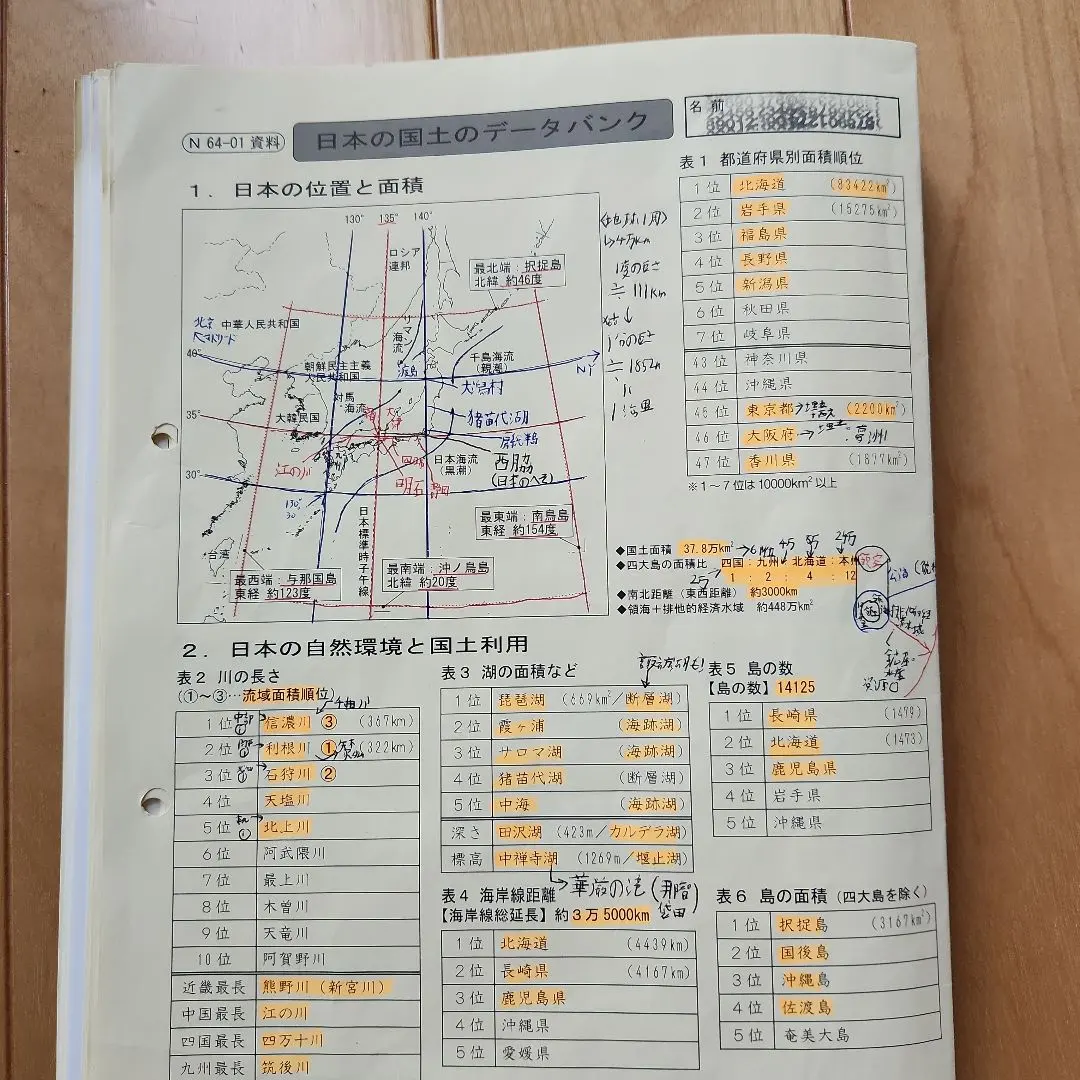 N 64-01 資料
日本の国土のデータバンク
名 前
1. 日本の位置と面積
130° 135° 140°
ロシア
連邦
最北端：択捉島
北緯 約46度
北京
中華人民共和国
リマン
海流
40°
朝鮮民主主義
人民共和国
千島海流
(親潮)
大潟村
対馬
海流
35°
大韓民国
猪苗代湖
西脇
(日本のへそ)
日本海流
(黒潮)
江の川
明石
30°
日本標準時子午線
最東端：南鳥島
東経 約154度
台湾
最西端：与那国島
東経 約123度
最南端：沖ノ鳥島
北緯 約20度
(地球1周)
↳4万km
1度の長さ
≒ 111km
≒ 1852m
1海里
表1 都道府県別面積順位
1位 北海道 (83422km²)
2位 岩手県 (15275km²)
3位 福島県
4位 長野県
5位 新潟県
6位 秋田県
7位 岐阜県
43位 神奈川県
44位 沖縄県
45位 東京都 (2200km²)
46位 大阪府
47位 香川県 (1877km²)
※1～7位は10000km²以上
◆国土面積 37.8万km²
◆四大島の面積比 四国：九州：北海道：本州
1 : 2 : 4 : 12
◆南北距離（東西距離） 約3000km
◆領海＋排他的経済水域 約448万km²
2. 日本の自然環境と国土利用
表2 川の長さ
(①～③…流域面積順位)
1位 信濃川 ③ (367km)
2位 利根川 ① (322km)
3位 石狩川 ②
4位 天塩川
5位 北上川
6位 阿武隈川
7位 最上川
8位 木曽川
9位 天竜川
10位 阿賀野川
近畿最長 熊野川（新宮川）
中国最長 江の川
四国最長 四万十川
九州最長 筑後川
表3 湖の面積など
1位 琵琶湖 (669km²／断層湖)
2位 霞ヶ浦 (海跡湖)
3位 サロマ湖 (海跡湖)
4位 猪苗代湖 (断層湖)
5位 中海 (海跡湖)
深さ 田沢湖 (423m／カルデラ湖)
標高 中禅寺湖 (1269m／堰止湖)
表4 海岸線距離
【海岸線総延長】約3万5000km
1位 北海道 (4439km)
2位 長崎県 (4167km)
3位 鹿児島県
4位 沖縄県
5位 愛媛県
表5 島の数
【島の数】14125
1位 長崎県 (1479)
2位 北海道 (1473)
3位 鹿児島県
4位 岩手県
5位 沖縄県
表6 島の面積（四大島を除く）
1位 択捉島 (3167km²)
2位 国後島
3位 沖縄島
4位 佐渡島
5位 奄美大島